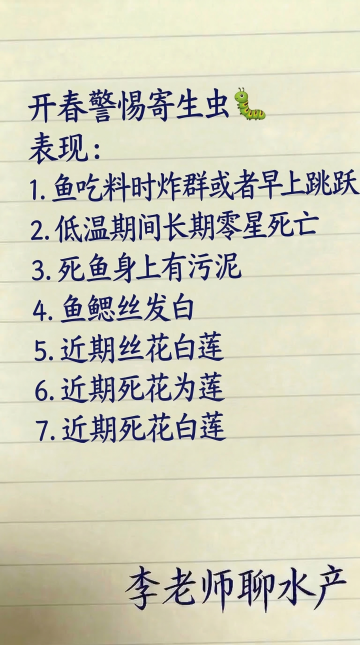 开春警惕寄生虫🐛
表现：
1. 鱼吃料时炸群或者早上跳跃
2. 低温期间长期零星死亡
3. 死鱼身上有污泥
4. 鱼鳃丝发白
5. 近期丝花白莲
6. 近期死花为莲
7. 近期死花白莲
李老师聊水产